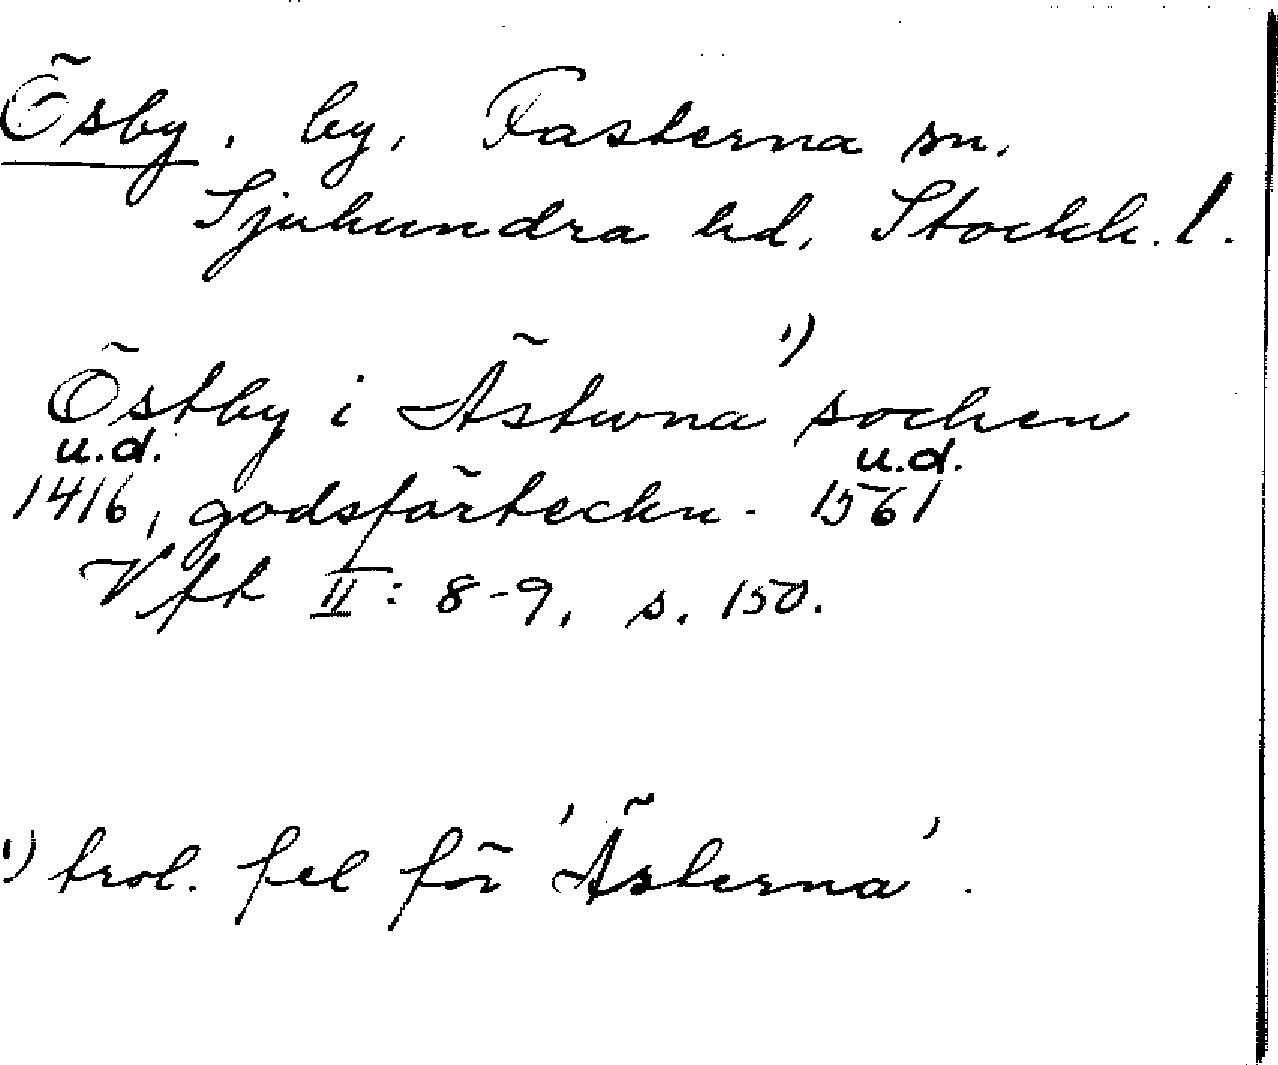 Ösby, by, Fasterna sn.
Sjuhundra hd, Stockh. l.
Östby i Ästwna ¹) sochen
u.d. u.d.
1416, godsförteckn. 1561
Vfk II: 8-9, s. 150.
¹) trol. fel för 'Ästerna'.